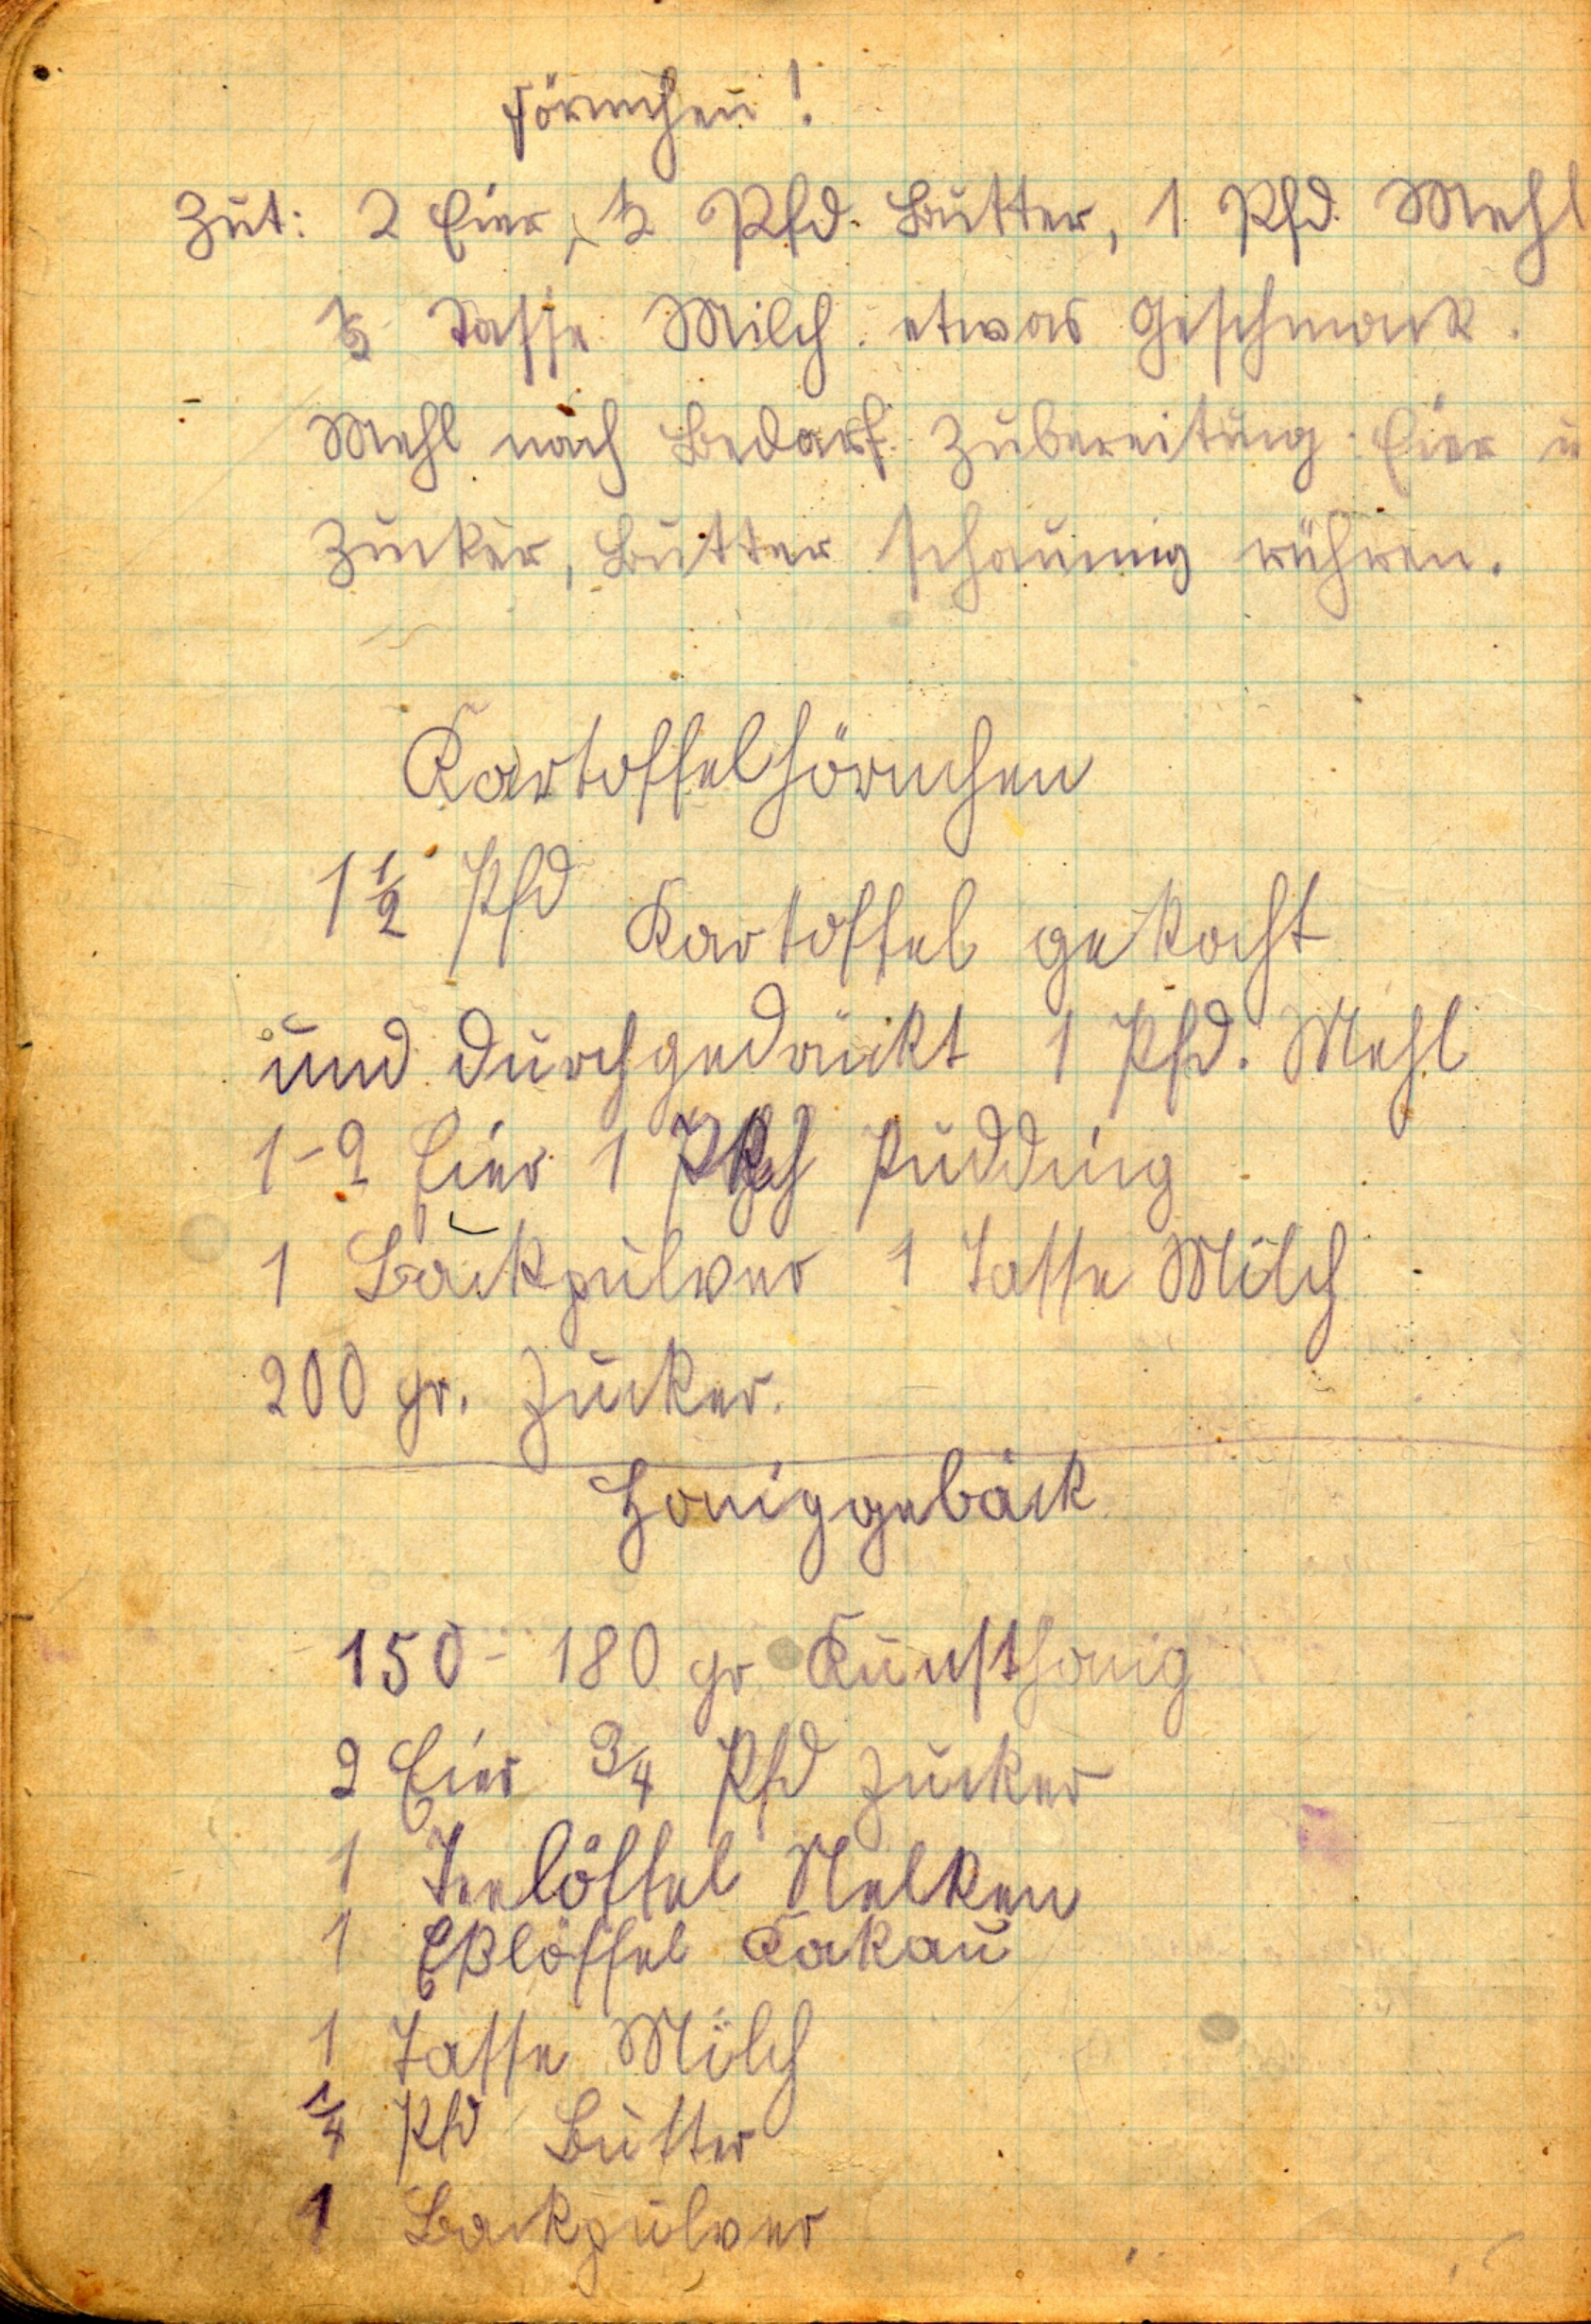 Förmchen!
Zut: 2 Eier, ½ Pfd. Butter, 1 Pfd. Mehl
½ Tasse Milch. etwas Geschmack.
Mehl nach Bedarf. Zubereitung: Eier u
Zucker, Butter schaumig rühren.
Kartoffelhörnchen
1½ Pfd Kartoffel gekocht
und durchgedrückt 1 Pfd. Mehl
1-2 Eier 1 Pudding
1 Backpulver 1 Tasse Milch
200 gr. Zucker.
Honiggebäck
150 - 180 gr Kunsthonig
2 Eier ¾ Pfd Zucker
1 Teelöffel Nelken
1 Eßlöffel Kakau
1 Tasse Milch
¼ Pfd Butter
1 Backpulver